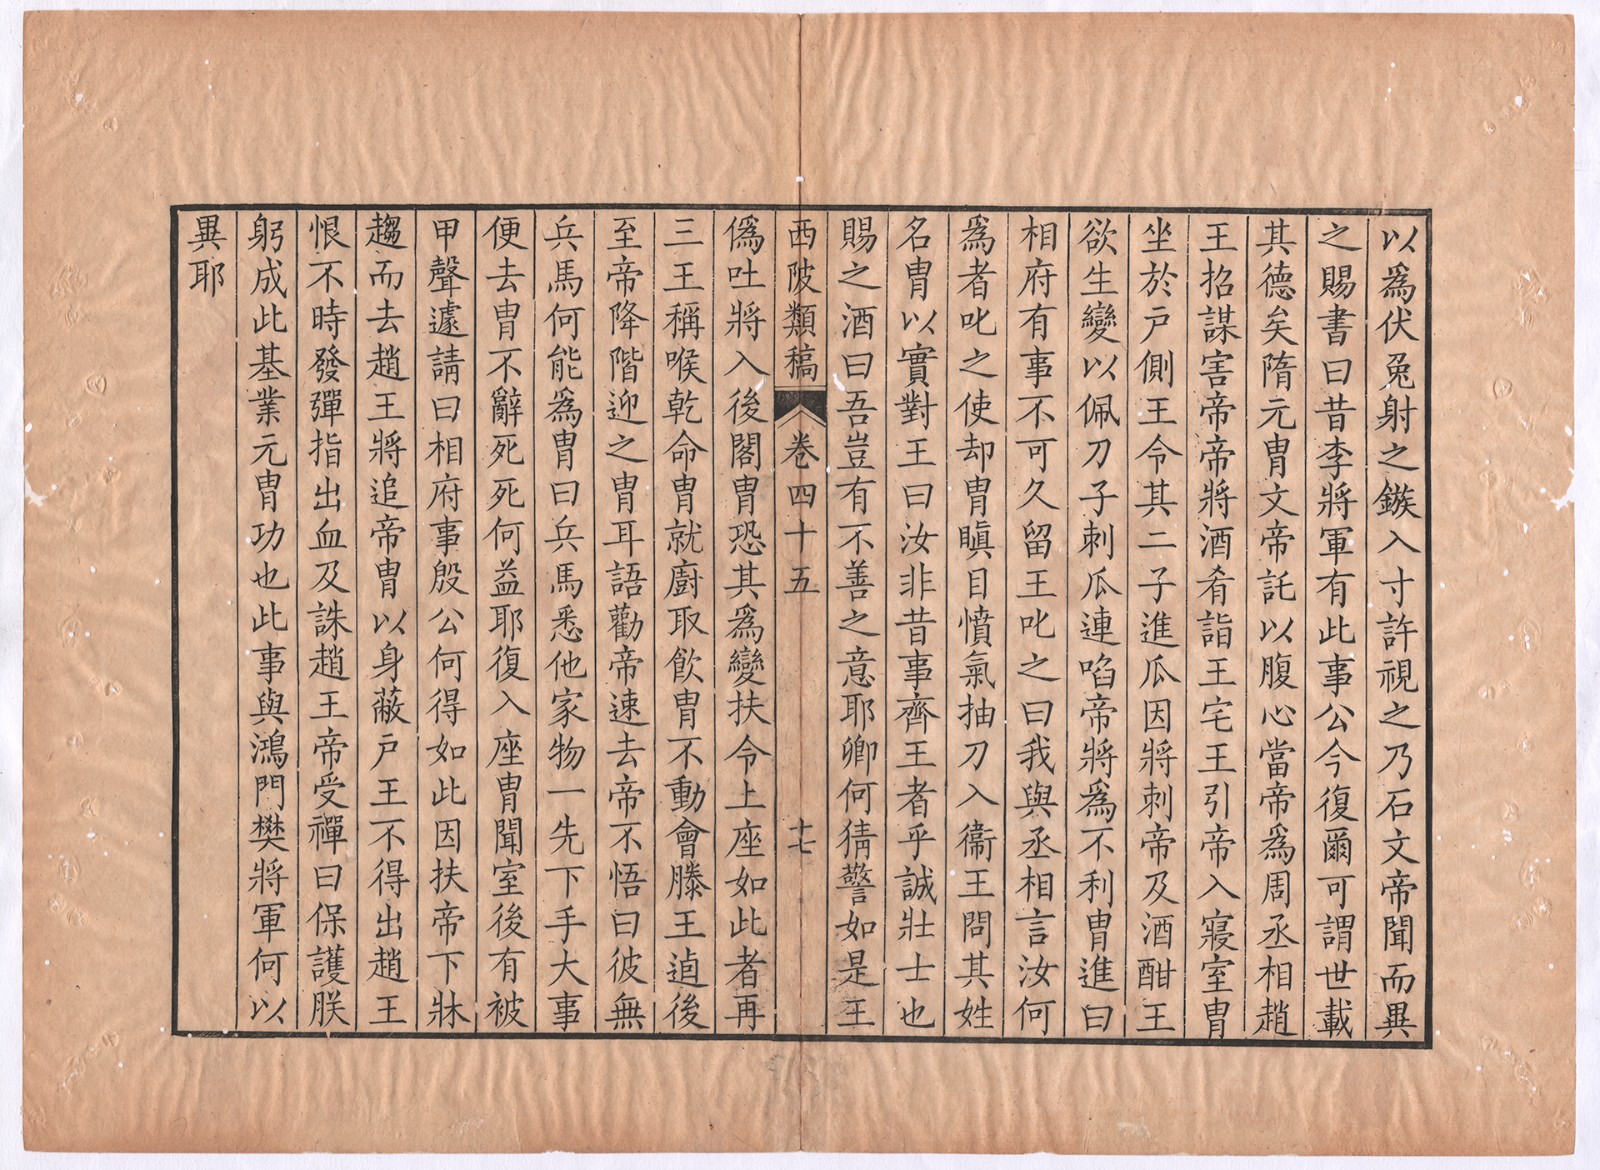 以爲伏兔射之鏃入寸許視之乃石文帝聞而異
之賜書曰昔李將軍有此事公今復爾可謂世載
其德矣隋元胄文帝託以腹心當帝爲周丞相趙
王招謀害帝帝將酒肴詣王宅王引帝入寢室胄
坐於戶側王令其二子進瓜因將刺帝及酒酣王
欲生變以佩刀子刺瓜連啗帝將爲不利胄進曰
相府有事不可久留王叱之曰我與丞相言汝何
爲者叱之使却胄瞋目憤氣抽刀入衞王問其姓
名胄以實對王曰汝非昔事齊王者乎誠壯士也
賜之酒曰吾豈有不善之意耶卿何猜警如是王
西陂類稿
卷四十五
十七
僞吐將入後閤胄恐其爲變扶令上座如此者再
三王稱喉乾命胄就廚取飲胄不動會滕王逌後
至帝降階迎之胄耳語勸帝速去帝不悟曰彼無
兵馬何能爲胄曰兵馬悉他家物一先下手大事
便去胄不辭死死何益耶復入座胄聞室後有被
甲聲遽請曰相府事殷公何得如此因扶帝下牀
趨而去趙王將追帝胄以身蔽戶王不得出趙王
恨不時發彈指出血及誅趙王帝受禪曰保護朕
躬成此基業元胄功也此事與鴻門樊將軍何以
異耶